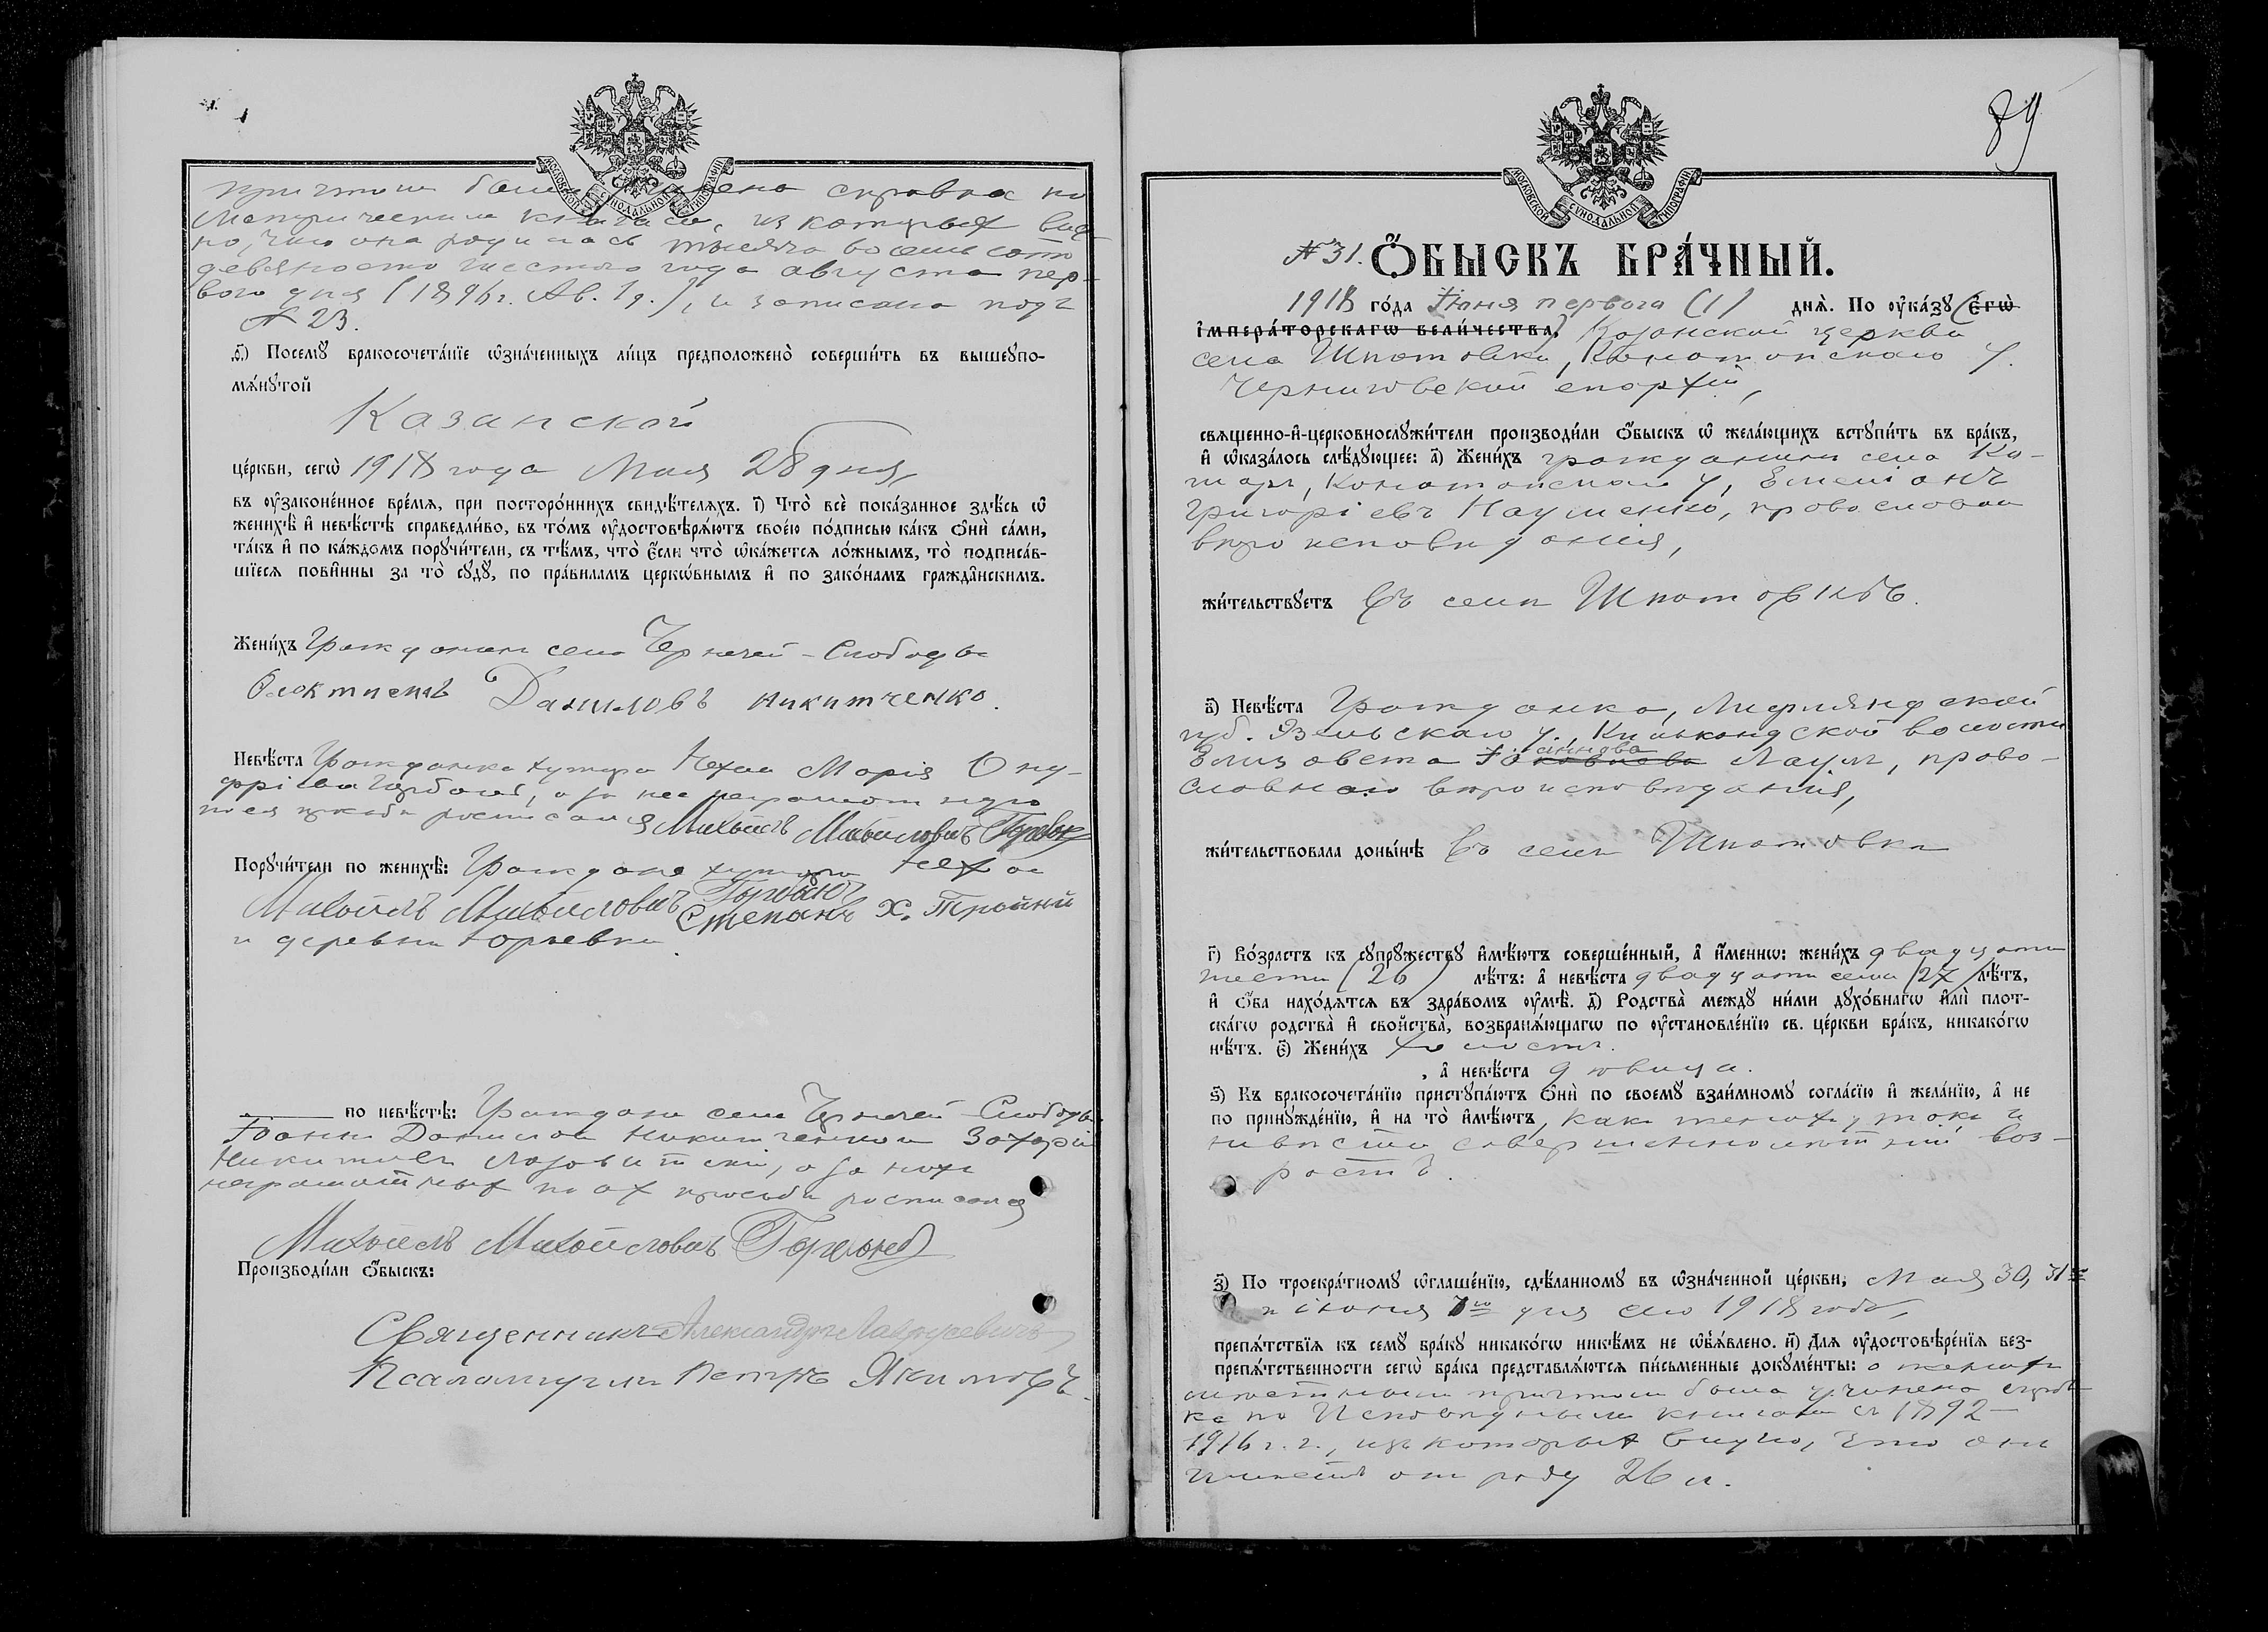 МОСКОВСКОЙ СѴНОДАЛЬНОЙ ТИПОГРАФІИ
причтом была учинена справка по
Метрическим книгам, из которых вид-
но, что она родилась тысяча восемьсот
девяносто шестого года августа пер-
вого дня (1896 г. Ав. 1 д.), и записана подъ
№ 23.
ѳ҃) Посемꙋ бракосочета́нїе ѡ҆зна́ченныхъ ли́цъ предположено̀ соверши́ть въ вышеупо-
мѧ́нꙋтой
Казанской
це́ркви, сегѡ̀ 1918 года Мая 28 дня,
въ ᲂу҆законе́нное вре́мѧ, при посторо́ннихъ свидѣ́телѧхъ. і҃) Что̀ всѐ пока́занное здѣ́сь ѡ҆
женихѣ̀ и҆ невѣ́стѣ справедли́во, въ то́мъ ᲂу҆достовѣрѧ́ютъ свое́ю по́дписью ка́къ ѻ҆нѝ са́ми,
та́къ и҆ по ка́ждомъ порꙋчи́тели, съ тѣ́мъ, что̀ є҆́сли что̀ ѡ҆ка́жетсѧ ло́жнымъ, то̀ подписа́в-
шїесѧ пови́нны за то̀ сꙋдꙋ̀, по пра́виламъ церкѡ́внымъ и҆ по зако́намъ гражда́нскимъ.
Жени́хъ Гражданин села Чернечей - Слободы
Феоктистъ Даниловъ Никитченко.
Невѣ́ста Гражданка хутора Нехая Марія Ону-
фріева, а за нее неграмотную
по ея просьбе росписался Михаилъ Михайловичъ
Порꙋчи́тели по женихѣ̀: Граждане хутора Нехая
Михаилъ Михайловичъ
Степанъ Х. Тройний
и деревни Юрьевки.
по невѣ́стѣ: Граждане села Чернечей Слободы
Іоанн Данилов Никитченко и Захарій
Никитиев, а за них
неграмотных по их просьбе росписался
Михаилъ Михайловичъ
Произво́дили ѻ҆́быскъ:
Священникъ Александръ
Псаломщикъ Петръ Якимовъ.
89
МОСКОВСКОЙ СѴНОДАЛЬНОЙ ТИПОГРАФІИ
№ 31. Ѻ҆́БЫСКЪ БРА́ЧНЫЙ.
1918 го́да Іюня первого (1) днѧ̀. По ᲂу҆ка́зꙋ (є҆гѡ̀
і҆мпера́торскагѡ вели́чества) Казанской церкви
села Шпотовки, Конотопскаго у.
Черниговской епархіи,
свѧщенно-и҆-церковнослꙋжи́тели производи́ли ѻ҆́быскъ ѡ҆ жела́ющихъ вступи́ть въ бра́къ,
и҆ ѡ҆каза́лось слѣ́дующее: а҃) Жени́хъ гражданин села Ко-
шар, Конотопскаго у., Емеліанъ
Григоріевъ Науменко, православнаго
вероисповедания,
жи́тельствꙋетъ Въ селе Шпотовкѣ.
в҃) Невѣ́ста Гражданка, Лифляндской
губ. Эзельскаго у., Килькондской волости
Елизавета Іоаннова Лаул, право-
славного вероисповедания,
жи́тельствовала доны́нѣ Въ селе Шпотовки
г҃) Во́зрастъ къ сꙋпрꙋ́жествꙋ и҆мѣ́ютъ соверше́нный, а҆ и҆́меннѡ: жени́хъ двадцати
шести (26) лѣ́тъ: а҆ невѣ́ста двадцати семи (27) лѣ́тъ,
и҆ ѻ҆́ба нахо́дѧтсѧ въ здра́вомъ ᲂу҆мѣ̀. д҃) Родства̀ междꙋ̀ ни́ми дꙋхо́внагѡ и҆лѝ плот-
ска́гѡ родства̀ и҆ свойства̀, возбранѧ́ющагѡ по ᲂу҆становле́нїю св. це́ркви бра́къ, никако́гѡ
нѣ́тъ. є҃) Жени́хъ холостъ.
, а҆ невѣ́ста девица.
ѕ҃) Къ бракосочета́нїю пристꙋпа́ютъ ѻ҆нѝ по своемꙋ̀ взаи́мномꙋ согла́сїю и҆ жела́нїю, а҆ не
по принꙋжде́нїю, и҆ на то̀ и҆мѣ́ютъ, как жених, так и
невеста совершеннолетний воз-
растъ.
з҃) По троекра́тномꙋ ѡ҆глаше́нїю, сдѣ́ланномꙋ въ ѡ҆зна́ченной це́ркви, Мая 30, 31го
и июня 1го дня сего 1918 года,
препѧ́тствїѧ къ семꙋ̀ бра́кꙋ никако́гѡ никѣ́мъ не ѡ҆б̾ѧ́влено. и҃) Длѧ ᲂу҆достовѣре́нїѧ без-
препѧ́тственности сегѡ̀ бра́ка представлѧ́ютсѧ пи́сьменные докꙋме́нты: о женихе
местным причтом была учинена справ-
ка по Исповедным книгам съ 1892 -
1916 г.г., из которых видно, что он
имеетъ от роду 26 л.